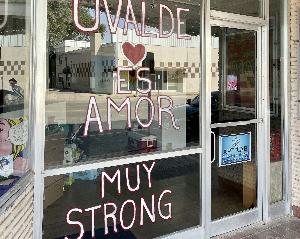 UVALDE
ES
AMOR
MUY
STRONG